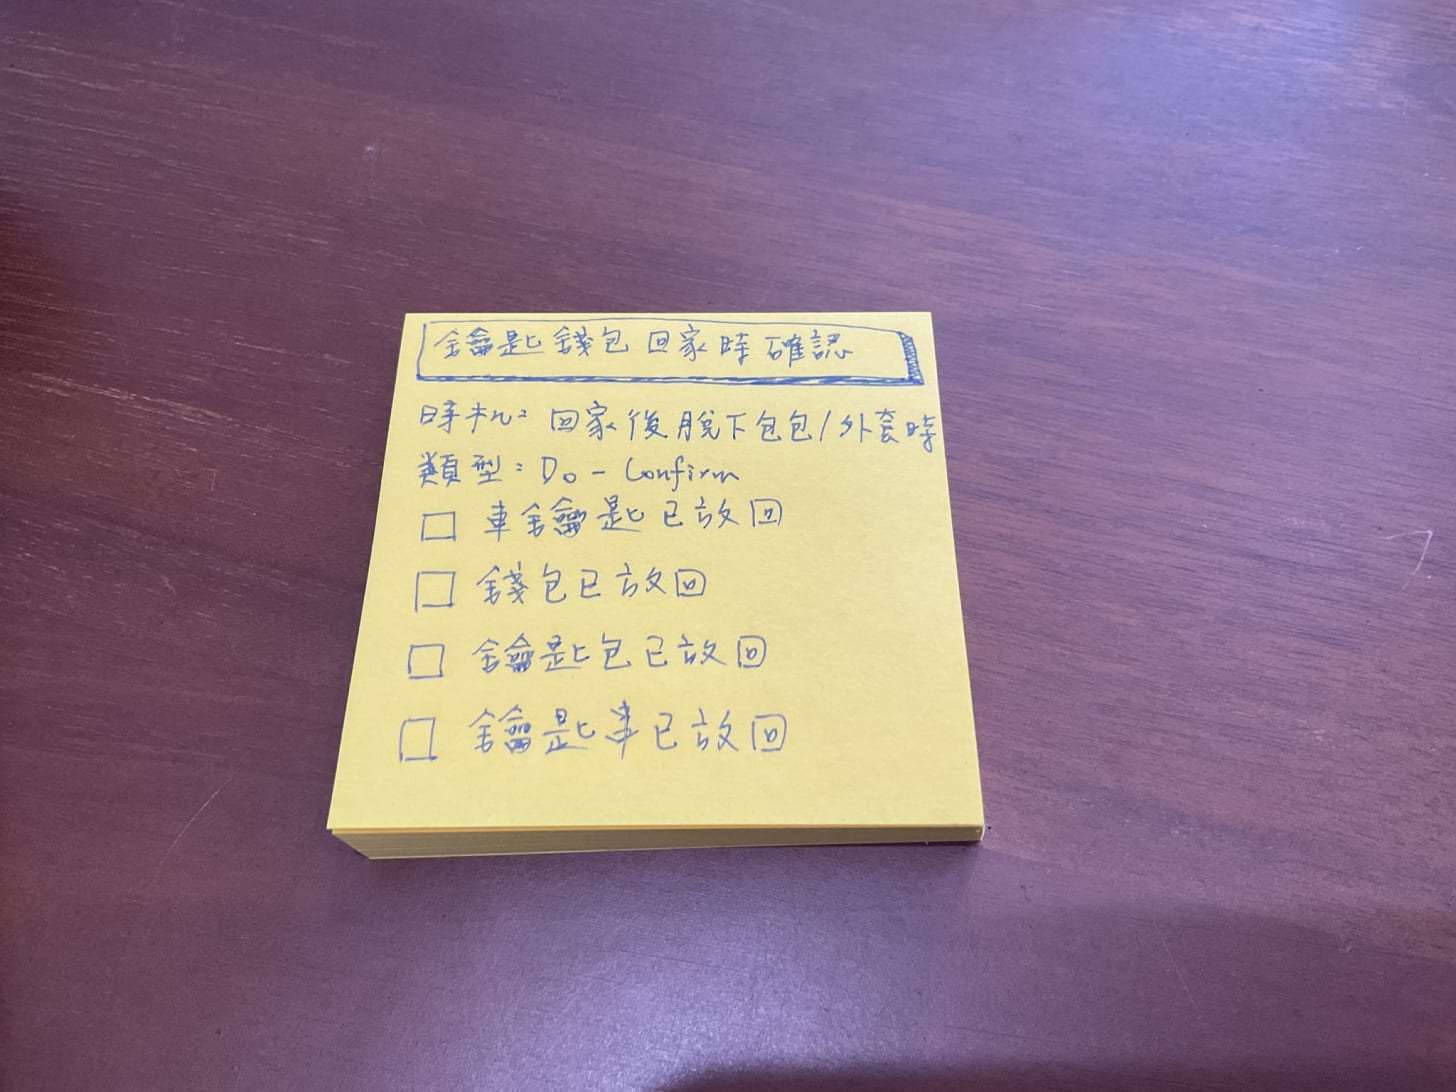 鑰匙錢包回家時確認
時机: 回家後脫下包包/外套時
類型: Do-Confirm
☐ 車鑰匙已放回
☐ 錢包已放回
☐ 鑰匙包已放回
☐ 鑰匙串已放回